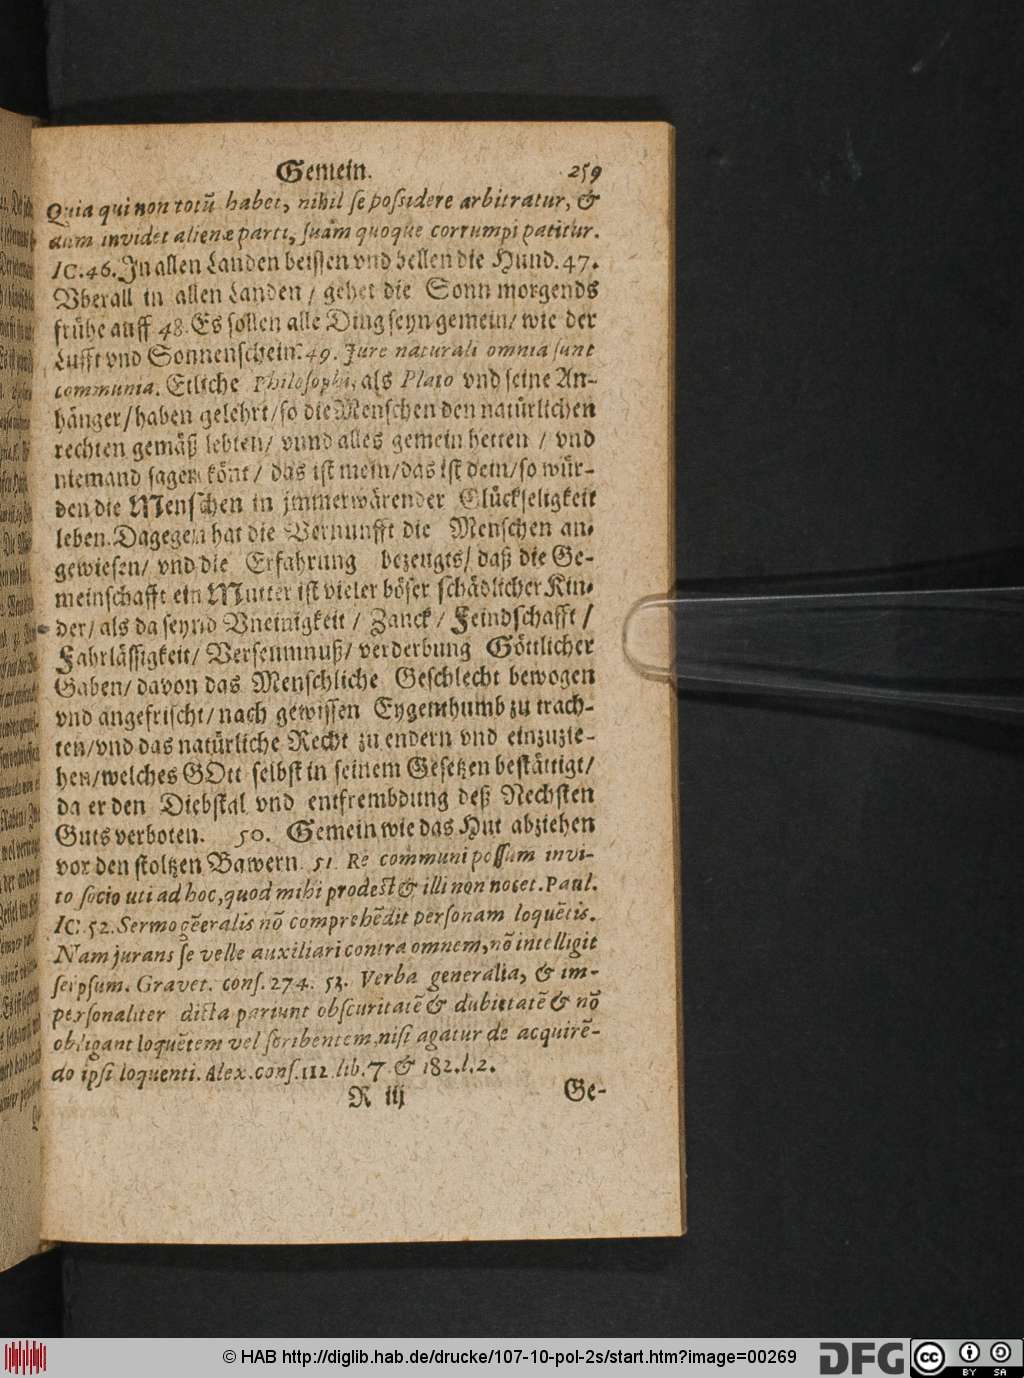 Gemein. 259
Quia qui non totũ habet, nihil se possidere arbitratur, &
dum invidet alienæ parti, suam quoque corrumpi patitur.
IC. 46. In allen Landen beissen vnd bellen die Hund. 47.
Vberall in allen Landen / gehet die Sonn morgends
frühe auff 48. Es sollen alle Ding seyn gemein / wie der
Lufft vnd Sonnenschein. 49. Jure naturali omnia sunt
communia. Etliche Philosophi, als Plato vnd seine An-
hänger / haben gelehrt / so die Menschen den natürlichen
rechten gemäß lebten / vnnd alles gemein hetten / vnd
niemand sagen könt / das ist mein / das ist dein / so wür-
den die Menschen in jmmerwärender Glückseligkeit
leben. Dagegen hat die Vernunfft die Menschen an-
gewiesen / vnd die Erfahrung bezeugts / daß die Ge-
meinschafft ein Mutter ist vieler böser schädlicher Kin-
der / als da seynd Vneinigkeit / Zanck / Feindschafft /
Fahrlässigkeit / Verseumnuß / verderbung Göttlicher
Gaben / davon das Menschliche Geschlecht bewogen
vnd angefrischt / nach gewissen Eygenthumb zu trach-
ten / vnd das natürliche Recht zu endern vnd einzuzie-
hen / welches GOtt selbst in seinem Gesetzen bestättigt /
da er den Diebstal vnd entfrembdung deß Nechsten
Guts verboten. 50. Gemein wie das Hut abziehen
vor den stoltzen Bawern. 51. Re communi possum invi-
to socio uti ad hoc, quod mihi prodest & illi non nocet. Paul.
IC. 52. Sermo gēeralis nō comprehēdit personam loquētis.
Nam jurans se velle auxiliari contra omnem, nō intelligit
seipsum. Gravet. cons. 274. 53. Verba generalia, & im-
personaliter dicta pariunt obscuritatē & dubietatē & nō
obligant loquētem vel scribentem, nisi agatur de acquirē-
do ipsi loquenti. Alex. cons. 112 lib. 7 & 182. l. 2.
R iij Ge-
© HAB http://diglib.hab.de/drucke/107-10-pol-2s/start.htm?image=00269
DFG
cc
BY SA